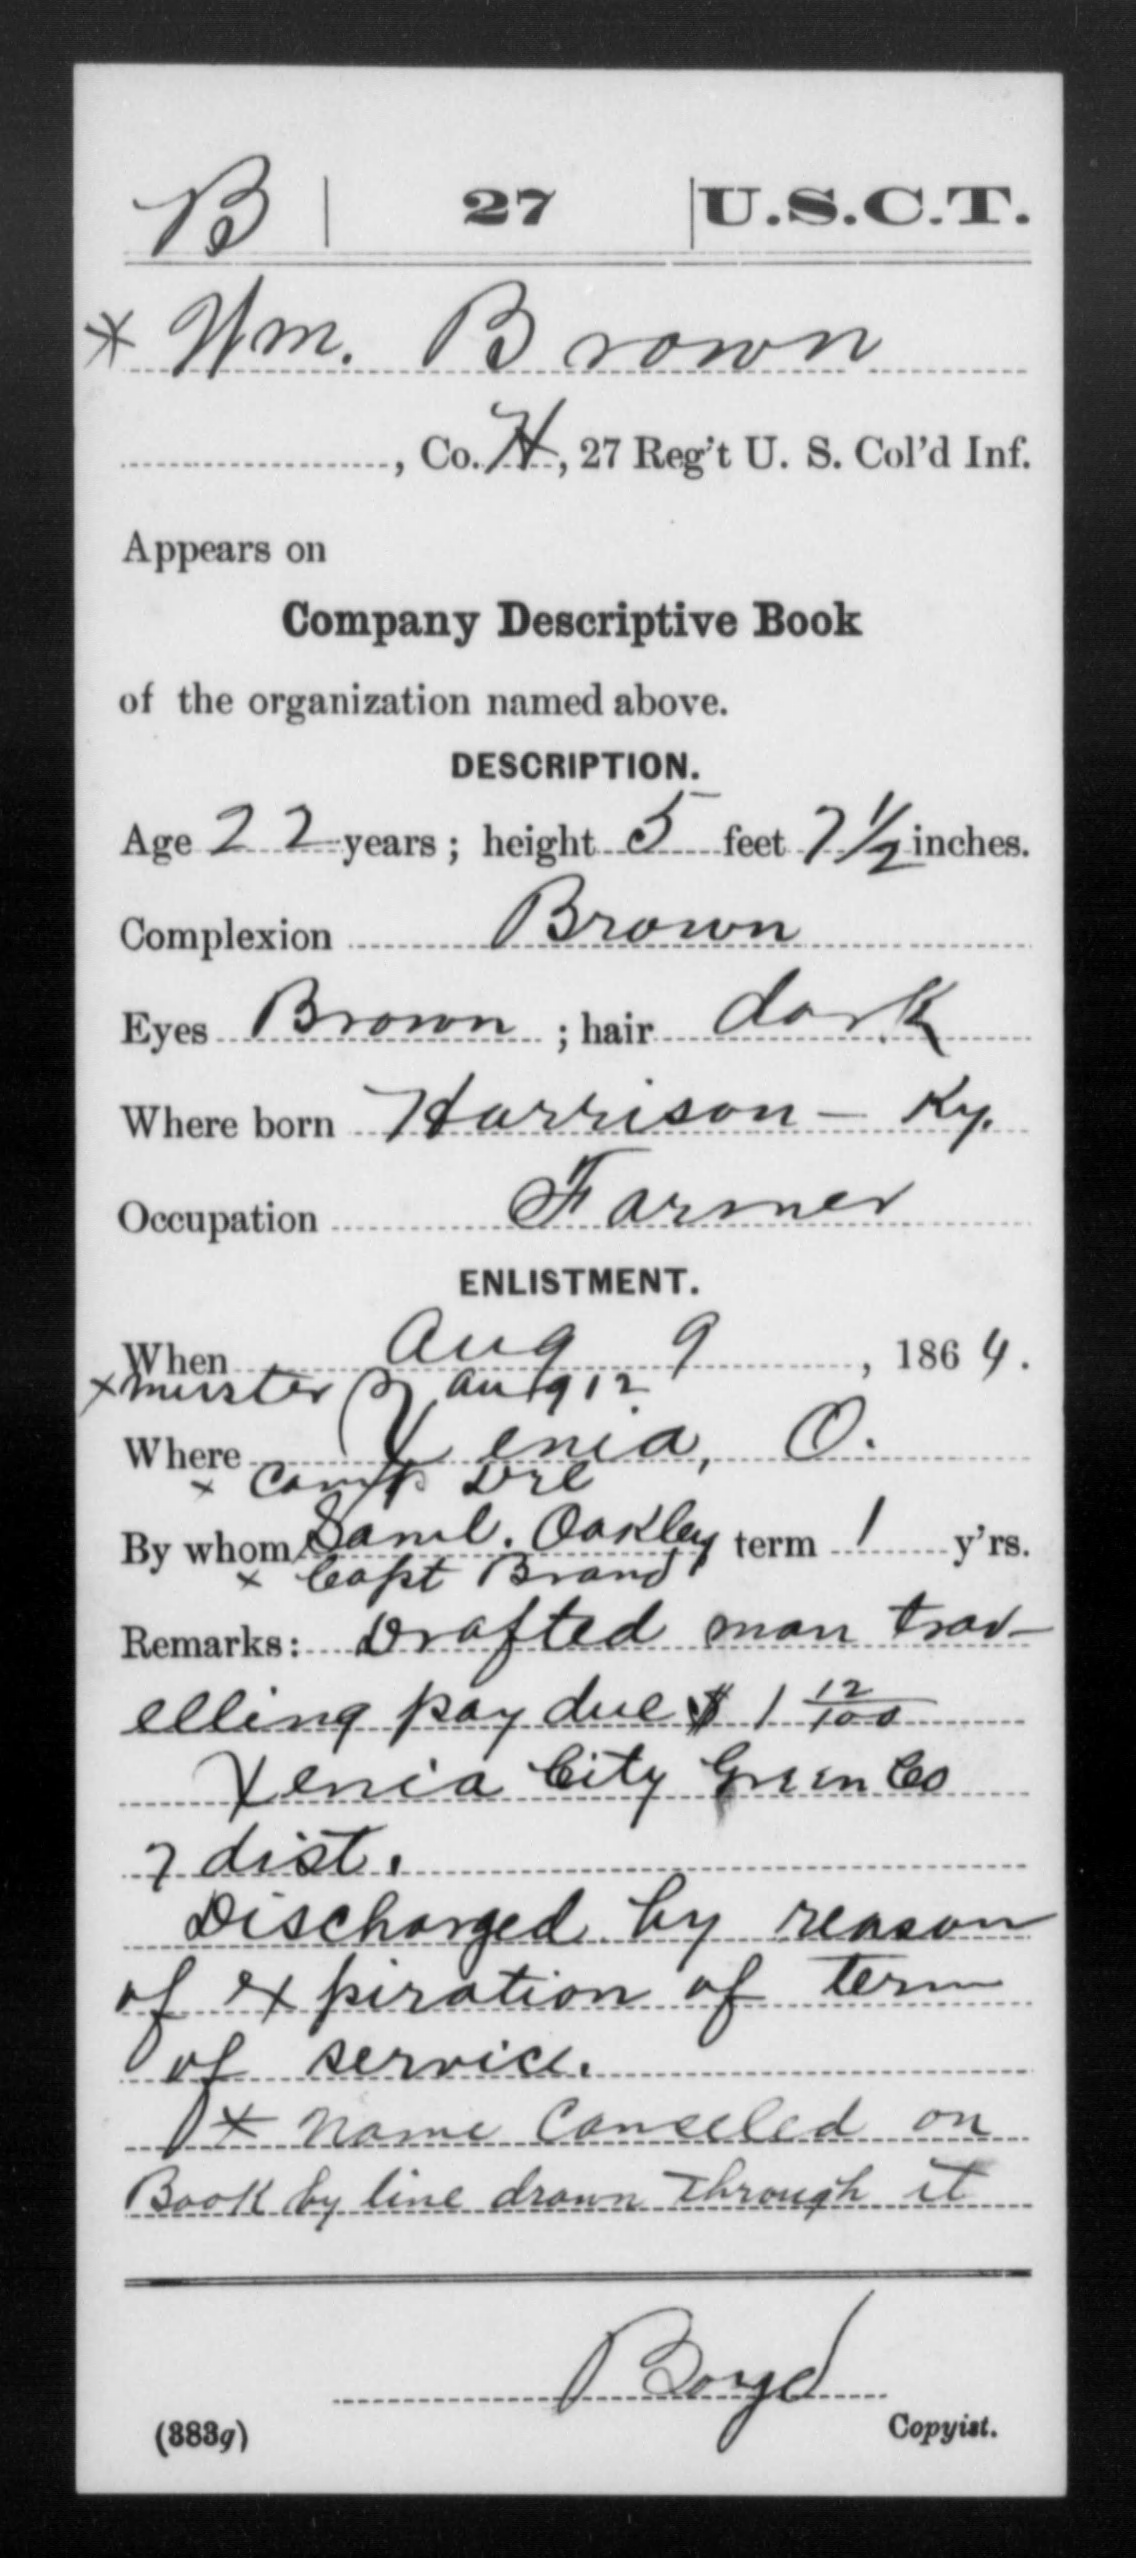 B | 27 | U.S.C.T.
* Wm. Brown
, Co. H, 27 Reg't U. S. Col'd Inf.
Appears on
Company Descriptive Book
of the organization named above.
DESCRIPTION.
Age 22 years; height 5 feet 7 1/2 inches.
Complexion Brown
Eyes Brown; hair dark
Where born Harrison - Ky.
Occupation Farmer
ENLISTMENT.
When Aug 9, 1864.
x muster Aug 12
Where Xenia, O.
x Camp
By whom Saml. Oakley term 1 y'rs.
x Capt Brand
Remarks: Drafted man trav-
elling pay due $ 1 12/100
Xenia City Green Co
7 dist.
Discharged by reason
of expiration of term
of service.
x Name Canseled on
Book by line drawn through it
Boyd
(383g) Copyist.